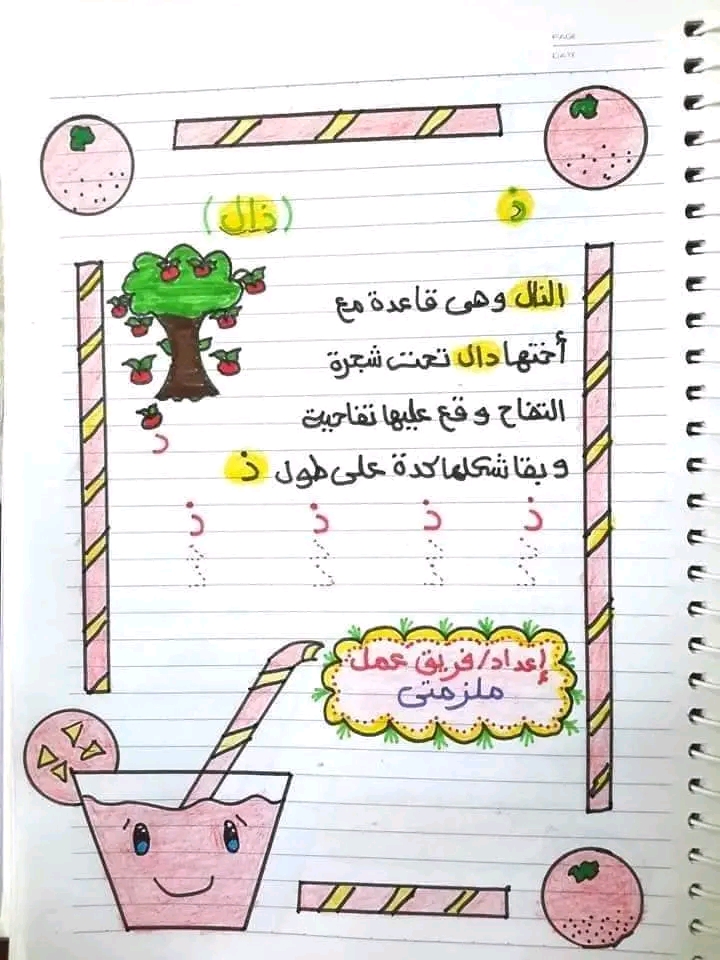 PAGE
DATE
ذ (ذال)
الذال وهى قاعدة مع
أختها دال تحت شجرة
التفاح وقع عليها تفاحية
وبقا شكلها كدة على طول ذ
د
ذ ذ ذ ذ
ذ ذ ذ ذ
إعداد/فريق عمل
ملزمتى